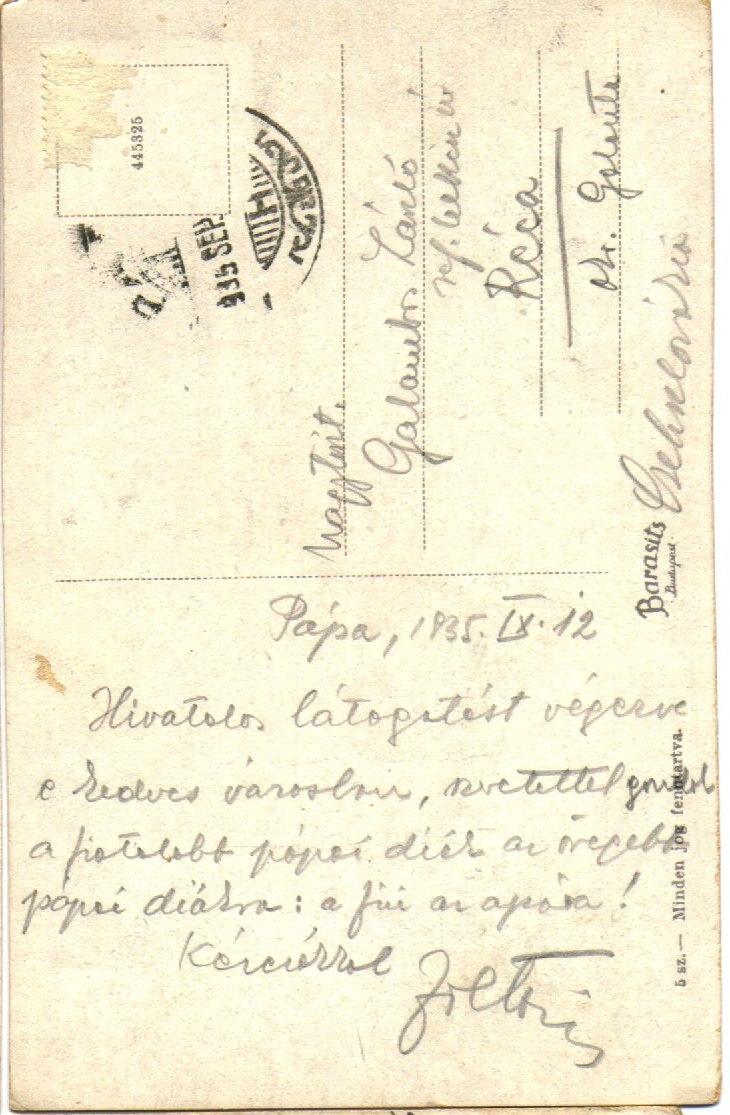 445325
935 SEP.
Nagytiszt.
Galambos László
ref. lelkész úr
Réca
okr. Galanta
Csehslovázia
Barasits
Budapest
Pápa, 1935. IX. 12
Hivatalos látogatást végezve
e kedves városban, szeretettel gondol
a fiatalabb pápai diák az öregebb
pápai diákra: a fiú az apára!
Kézcsókkal
Zoltán
5 sz. — Minden jog fenntartva.